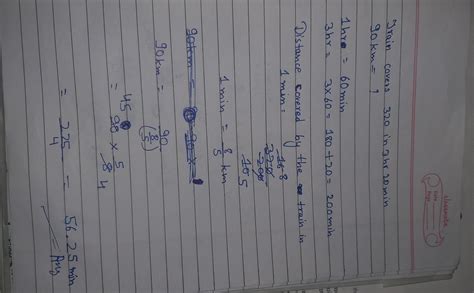 Train covers 320 in 3hr 20min
90km = ?
1hr = 60min
3hr = 3x60 = 180+20 = 200min
Distance covered by the train in
1 min =
16 8
320
200
10 5
1 min = 8/5 km
90km =
90km = 90/(8/5)
= 45 90 x 5/8 4
= 225/4 = 56.25 min
Ans